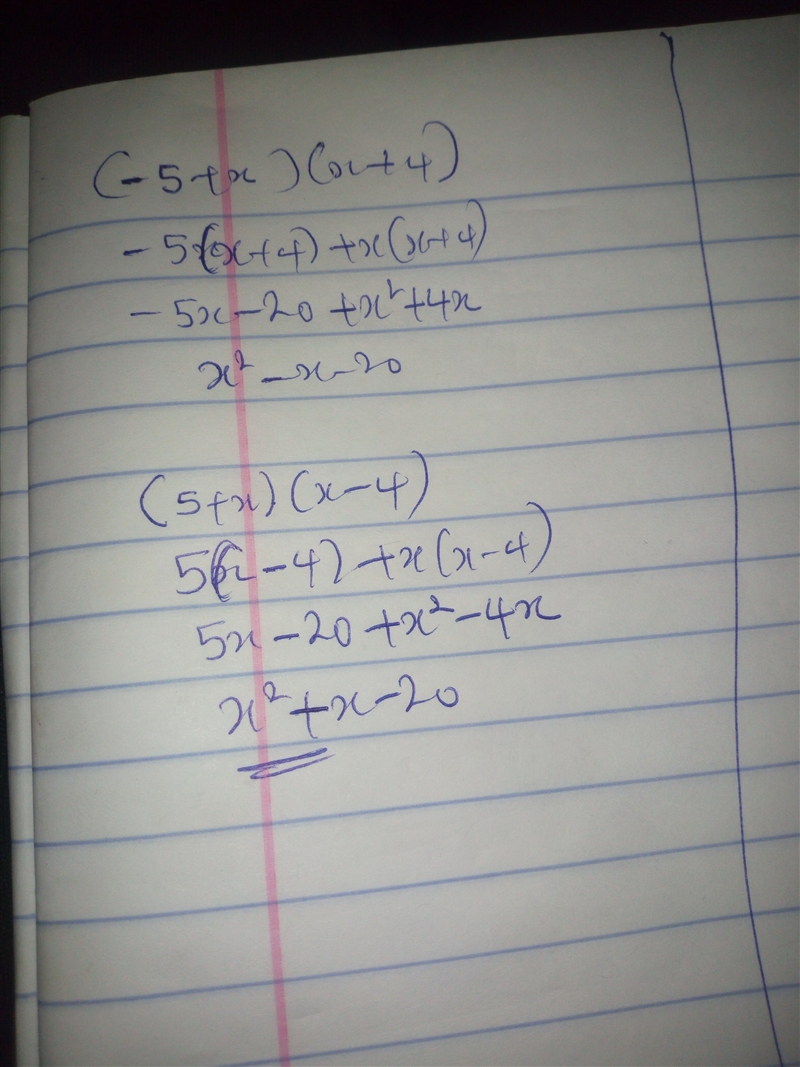 (-5+x)(x+4)
-5(x+4)+x(x+4)
-5x-20+x²+4x
x²-x-20
(5+x)(x-4)
5(x-4)+x(x-4)
5x-20+x²-4x
x²+x-20